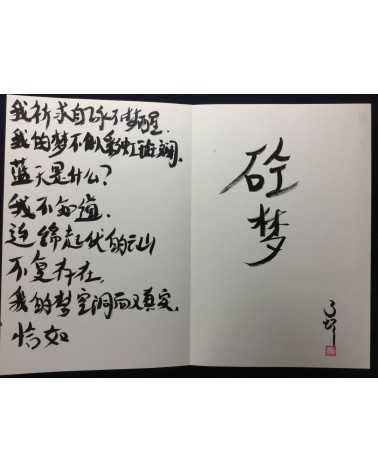 我祈求自己永不梦醒.
我的梦不似彩虹斑斓.
蓝天是什么?
我不知道.
连绵起伏的云山
不复存在.
我的梦空洞而又真实.
恰如
砼
梦